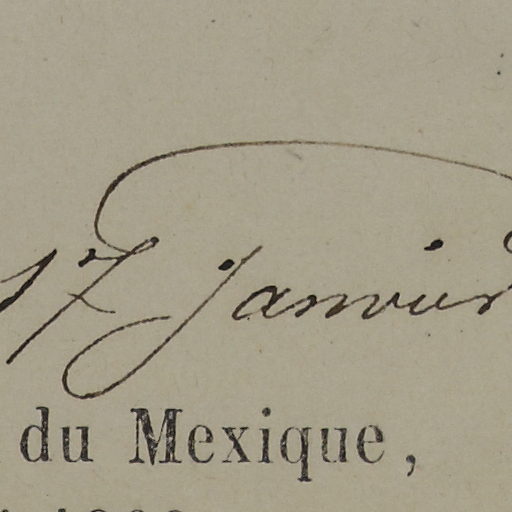 17 Janvier
du Mexique,